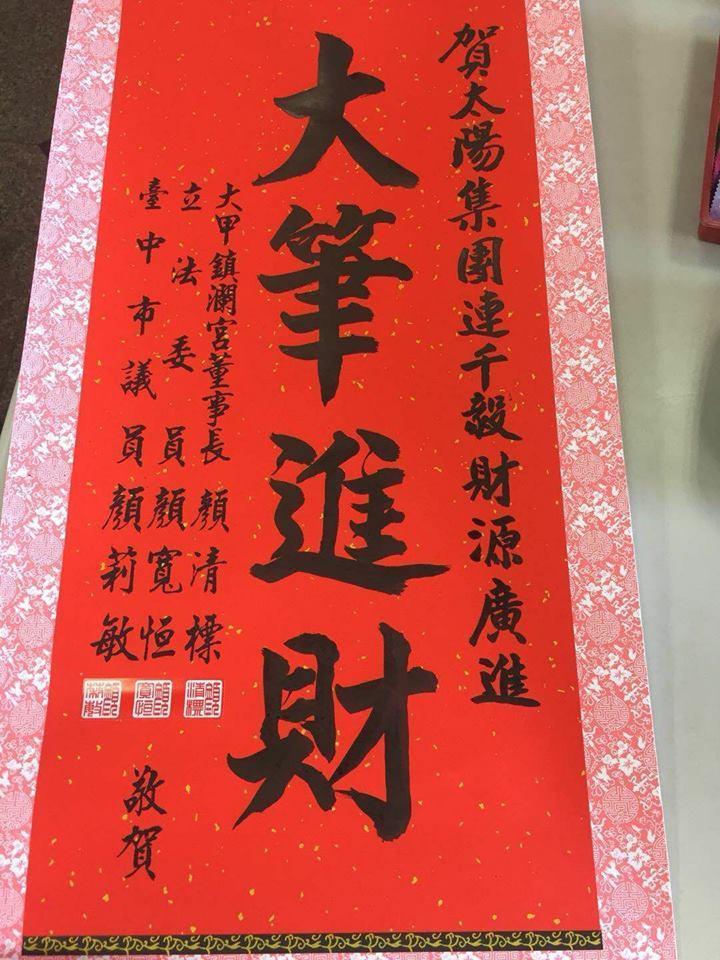 賀太陽集團連千毅財源廣進
大筆進財
大甲鎮瀾宮董事長顏清標
立法委員顏寬恒
臺中市議員顏莉敏
敬賀
顏清標
顏寬恒
顏莉敏